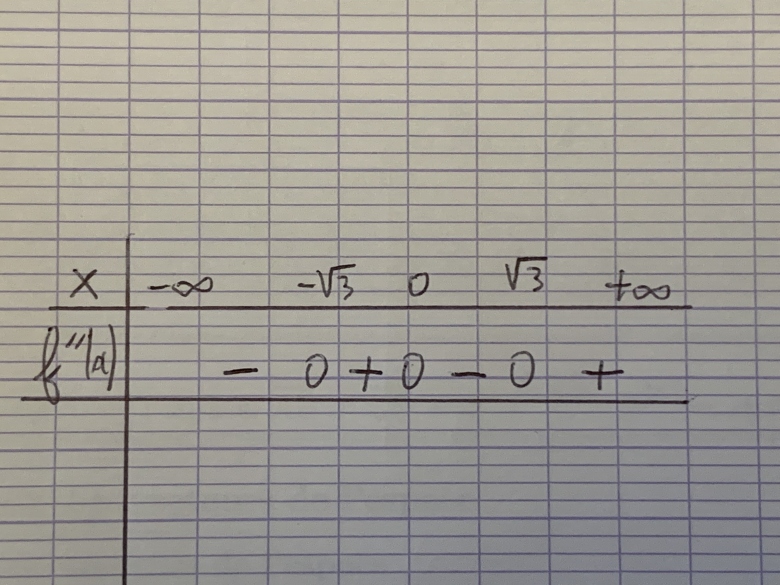 x -∞ -√3 0 √3 +∞
f''(x) - 0 + 0 - 0 +